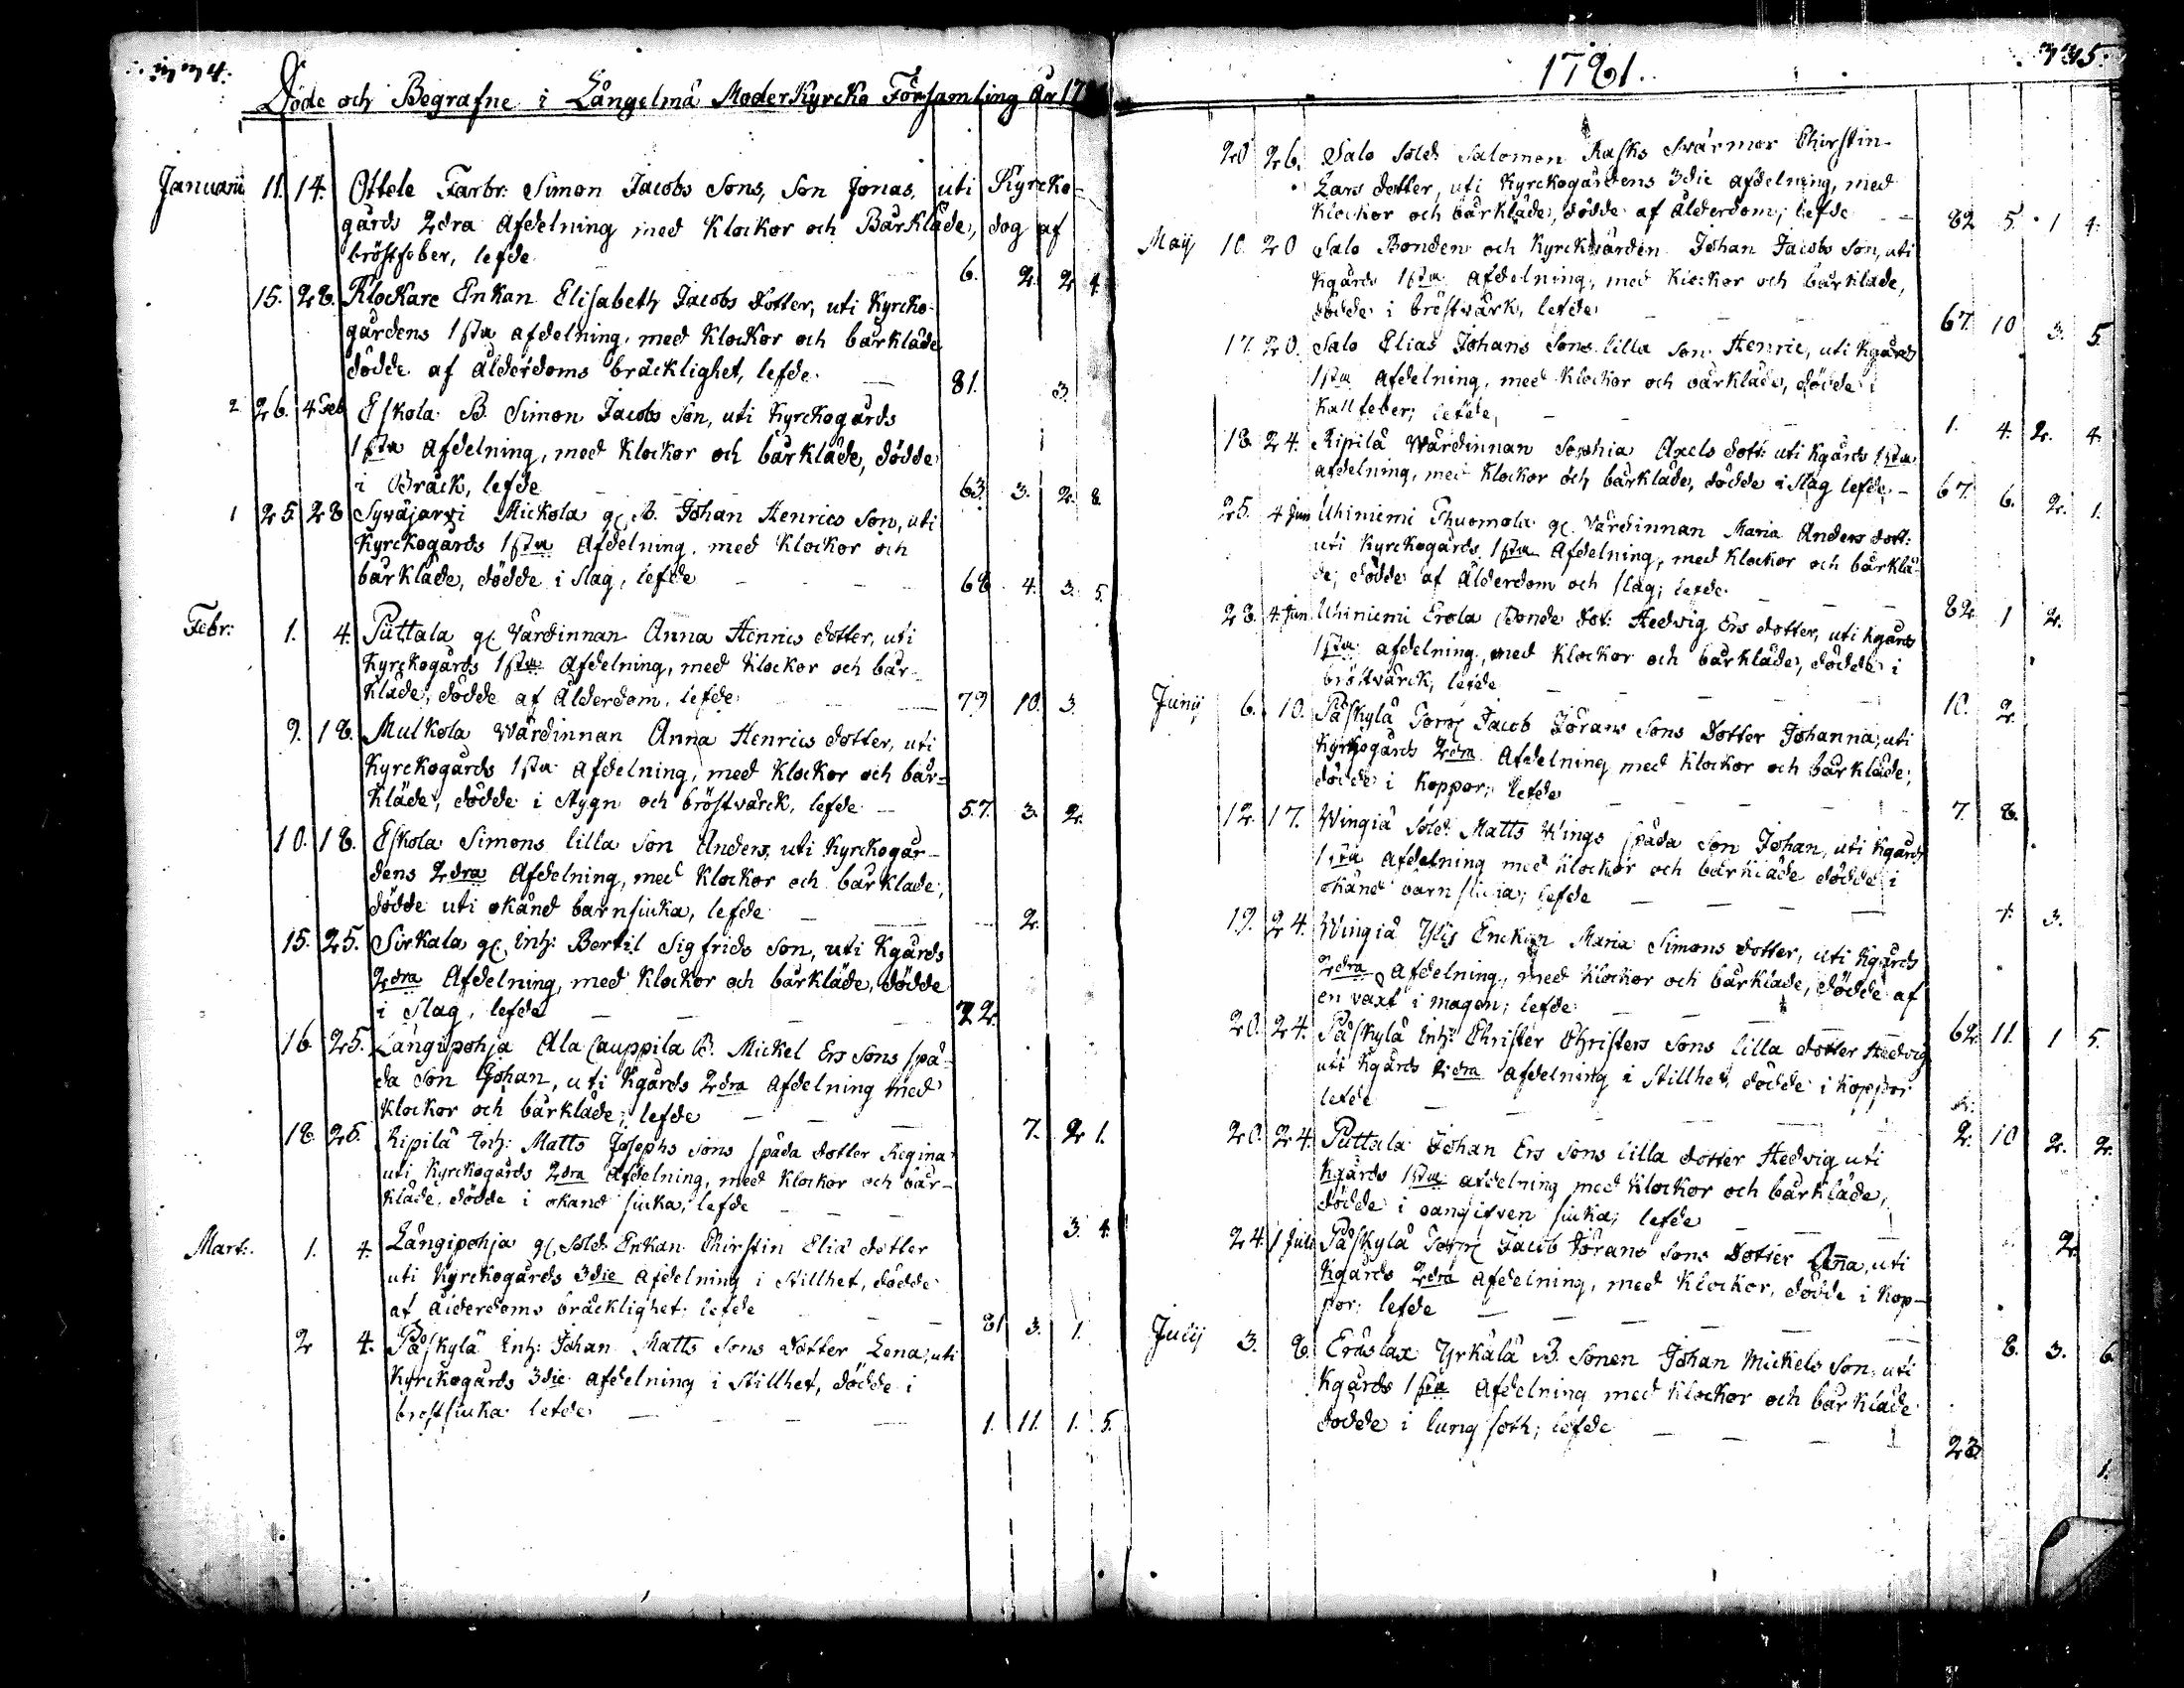 334.
Döde och Begrafne i Långelmä ModerKyrcko Församling År 17
Januarii 11. 14. Ottele Farbr: Simon Jacobs Sons, Son Jonas, uti Kyrcko-
gårds 2dra Afdelning med Klockor och Bårkläde, dog af
bröstfeber, lefde 6. 2. 2 4
15. 28. Klockare Enkan Elisabeth Jacobs Dotter, uti Kyrcko-
gårdens 1sta afdelning, med Klockor och bårkläde
dödde af Ålderdoms bräcklighet, lefde 81. 3.
2 26. 4 Feb Eskola B. Simon Jacobs Son, uti Kyrckogårds
1sta Afdelning, med Klockor och bårkläde, dödde
i Bräck, lefde 63. 3. 2. 8
1 25. 28 Syväjarvi Mickola gl. B. Johan Henrics Son, uti
Kyrckogårds 1sta Afdelning, med Klockor och
bårkläde, dödde i slag, lefde 68 4. 3. 5.
Febr: 1. 4. Puttala gl. Värdinnan Anna Henrics dotter, uti
Kyrckogårds 1sta Afdelning, med Klockor och bår-
kläde, dödde af Ålderdom, lefde 79 10. 3.
9. 18. Mulkola Wärdinnan Anna Henrics dotter, uti
Kyrckogårds 1sta Afdelning, med Klockor och bår=
kläde, dödde i stygn och bröstvärck, lefde 57. 3. 2.
10. 18. Eskola Simons lilla Son Anders, uti Kyrckogår-
dens 2dra Afdelning, med Klockor och bårkläde,
dödde uti okänd barnsiuka, lefde 2.
15. 25. Sirkala gl. Inh: Bertil Sigfrids Son, uti Kgårds
2dra Afdelning, med Klockor och bårkläde, dödde
i Slag, lefde 72.
16 25. Långipohja Ala Cauppila B. Mickel Ers Sons spä-
da Son Johan, uti Kgårds 2dra Afdelning med
Klockor och bårkläde, lefde 7. 2 1.
18. 25. Ripilä Inh: Matts Josephs Sons späda dotter Regina
uti Kyrckogårds 2dra Afdelning, med Klockor och bår-
kläde, dödde i okänd siuka, lefde 3. 4.
Mart: 1. 4. Långipohja gl. Sold: Enkan Chirstin Eliä dotter
uti Kyrckogårds 3die Afdelning i Stillhet, dödde
af ålderdoms bräcklighet, lefde 81 3. 1.
2 4. Påskylä Inh: Johan Matts Sons Dotter Lena, uti
Kyrckogårds 3die Afdelning i Stillhet, dödde i
bröstsiuka lefde 1. 11. 1. 5.
1781.
335.
20 26. Salo Sold: Salomon Rasks Swärmor Chirstin
Lars dotter, uti Kyrckogårdens 3die afdelning, med
Klockor och bårkläde, dödde af Ålderdom, lefde 82 5. 1 4.
Maij 10. 20 Salo Bonden och Kyrckvärden Johan Jacobs Son, uti
Kgårds 1sta Afdelning, med Klockor och bårkläde,
dödde i bröstvärk, lefde 67. 10 3. 5
17. 20. Salo Elias Johans Sons lilla Son Henric, uti Kgårds
1sta Afdelning, med Klockor och bårkläde, dödde i
Kallfeber; lefde, 1. 4. 2. 4.
18. 24. Ripilä Wärdinnan Sophia Axels dott: uti Kgårds 1sta
afdelning, med Klockor och bårkläde, dödde i Slag lefde 67. 6. 2. 1.
25. 4 Jun Uhiniemi Thuomola gl. Värdinnan Maria Anders dott:
uti Kyrckogårds 1sta Afdelning, med Klockor och bårklä-
de, dödde af Ålderdom och slag; lefde 82 1 2.
28. 4 Jun Uhiniemi Erola Bonde dot: Hedvig Ers dotter, uti kgårds
1sta afdelning, med Klockor och bårkläde, dödde i
bröstvärck, lefde 10. 2.
Junij 6. 10. Påskylä Torp: Jacob Jörans Sons Dotter Johanna, uti
Kyrkogårds 2dra Afdelning med Klockor och bårkläde,
dödde i Koppor, lefde 7. 8.
12. 17. Wingiä Sold: Matts Wings späda Son Johan, uti Kgårds
1sta Afdelning med Klockor och bårkläde dödde i
okänd barnsiuka; lefde 7. 3.
19. 24. Wingiä Ylis Enckan Maria Simons dotter, uti Kgårds
2dra Afdelning, med Klockor och bårkläde, dödde af
en växt i magen; lefde 62. 11. 1 5.
20. 24. Påskylä Inh: Christer Christers Sons lilla dotter Hedvig
uti Kgårds 2dra Afdelning i Stillhet, dödde i Koppor
lefde
20. 24. Puttala Johan Ers Sons lilla dotter Hedvig uti
Kgårds 1sta afdelning med Klockor och bårkläde,
dödde i oangifven siuka; lefde 2. 10 2. 2.
24. 1 Julii Påskylä Torp: Jacob Jörans Sons Dotter Anna, uti
Kgårds 2dra Afdelning, med Klockor, dödde i Kop-
por; lefde 2.
Julij 3. 8. Eräslax Yrkälä B. Sonen Johan Mickels Son, uti
Kgårds 1sta Afdelning med Klockor och bårkläde
dödde i lungsoth; lefde 8. 3. 6
23 1.